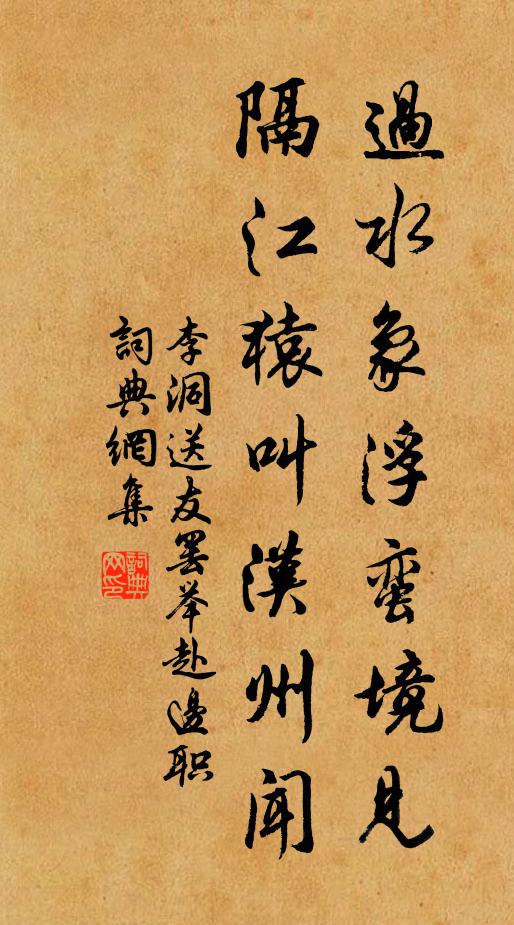 過水象浮蛮境見
隔江猿叫漢州聞
李洞送友罷举赴邊职
詞典網集
詞典網印